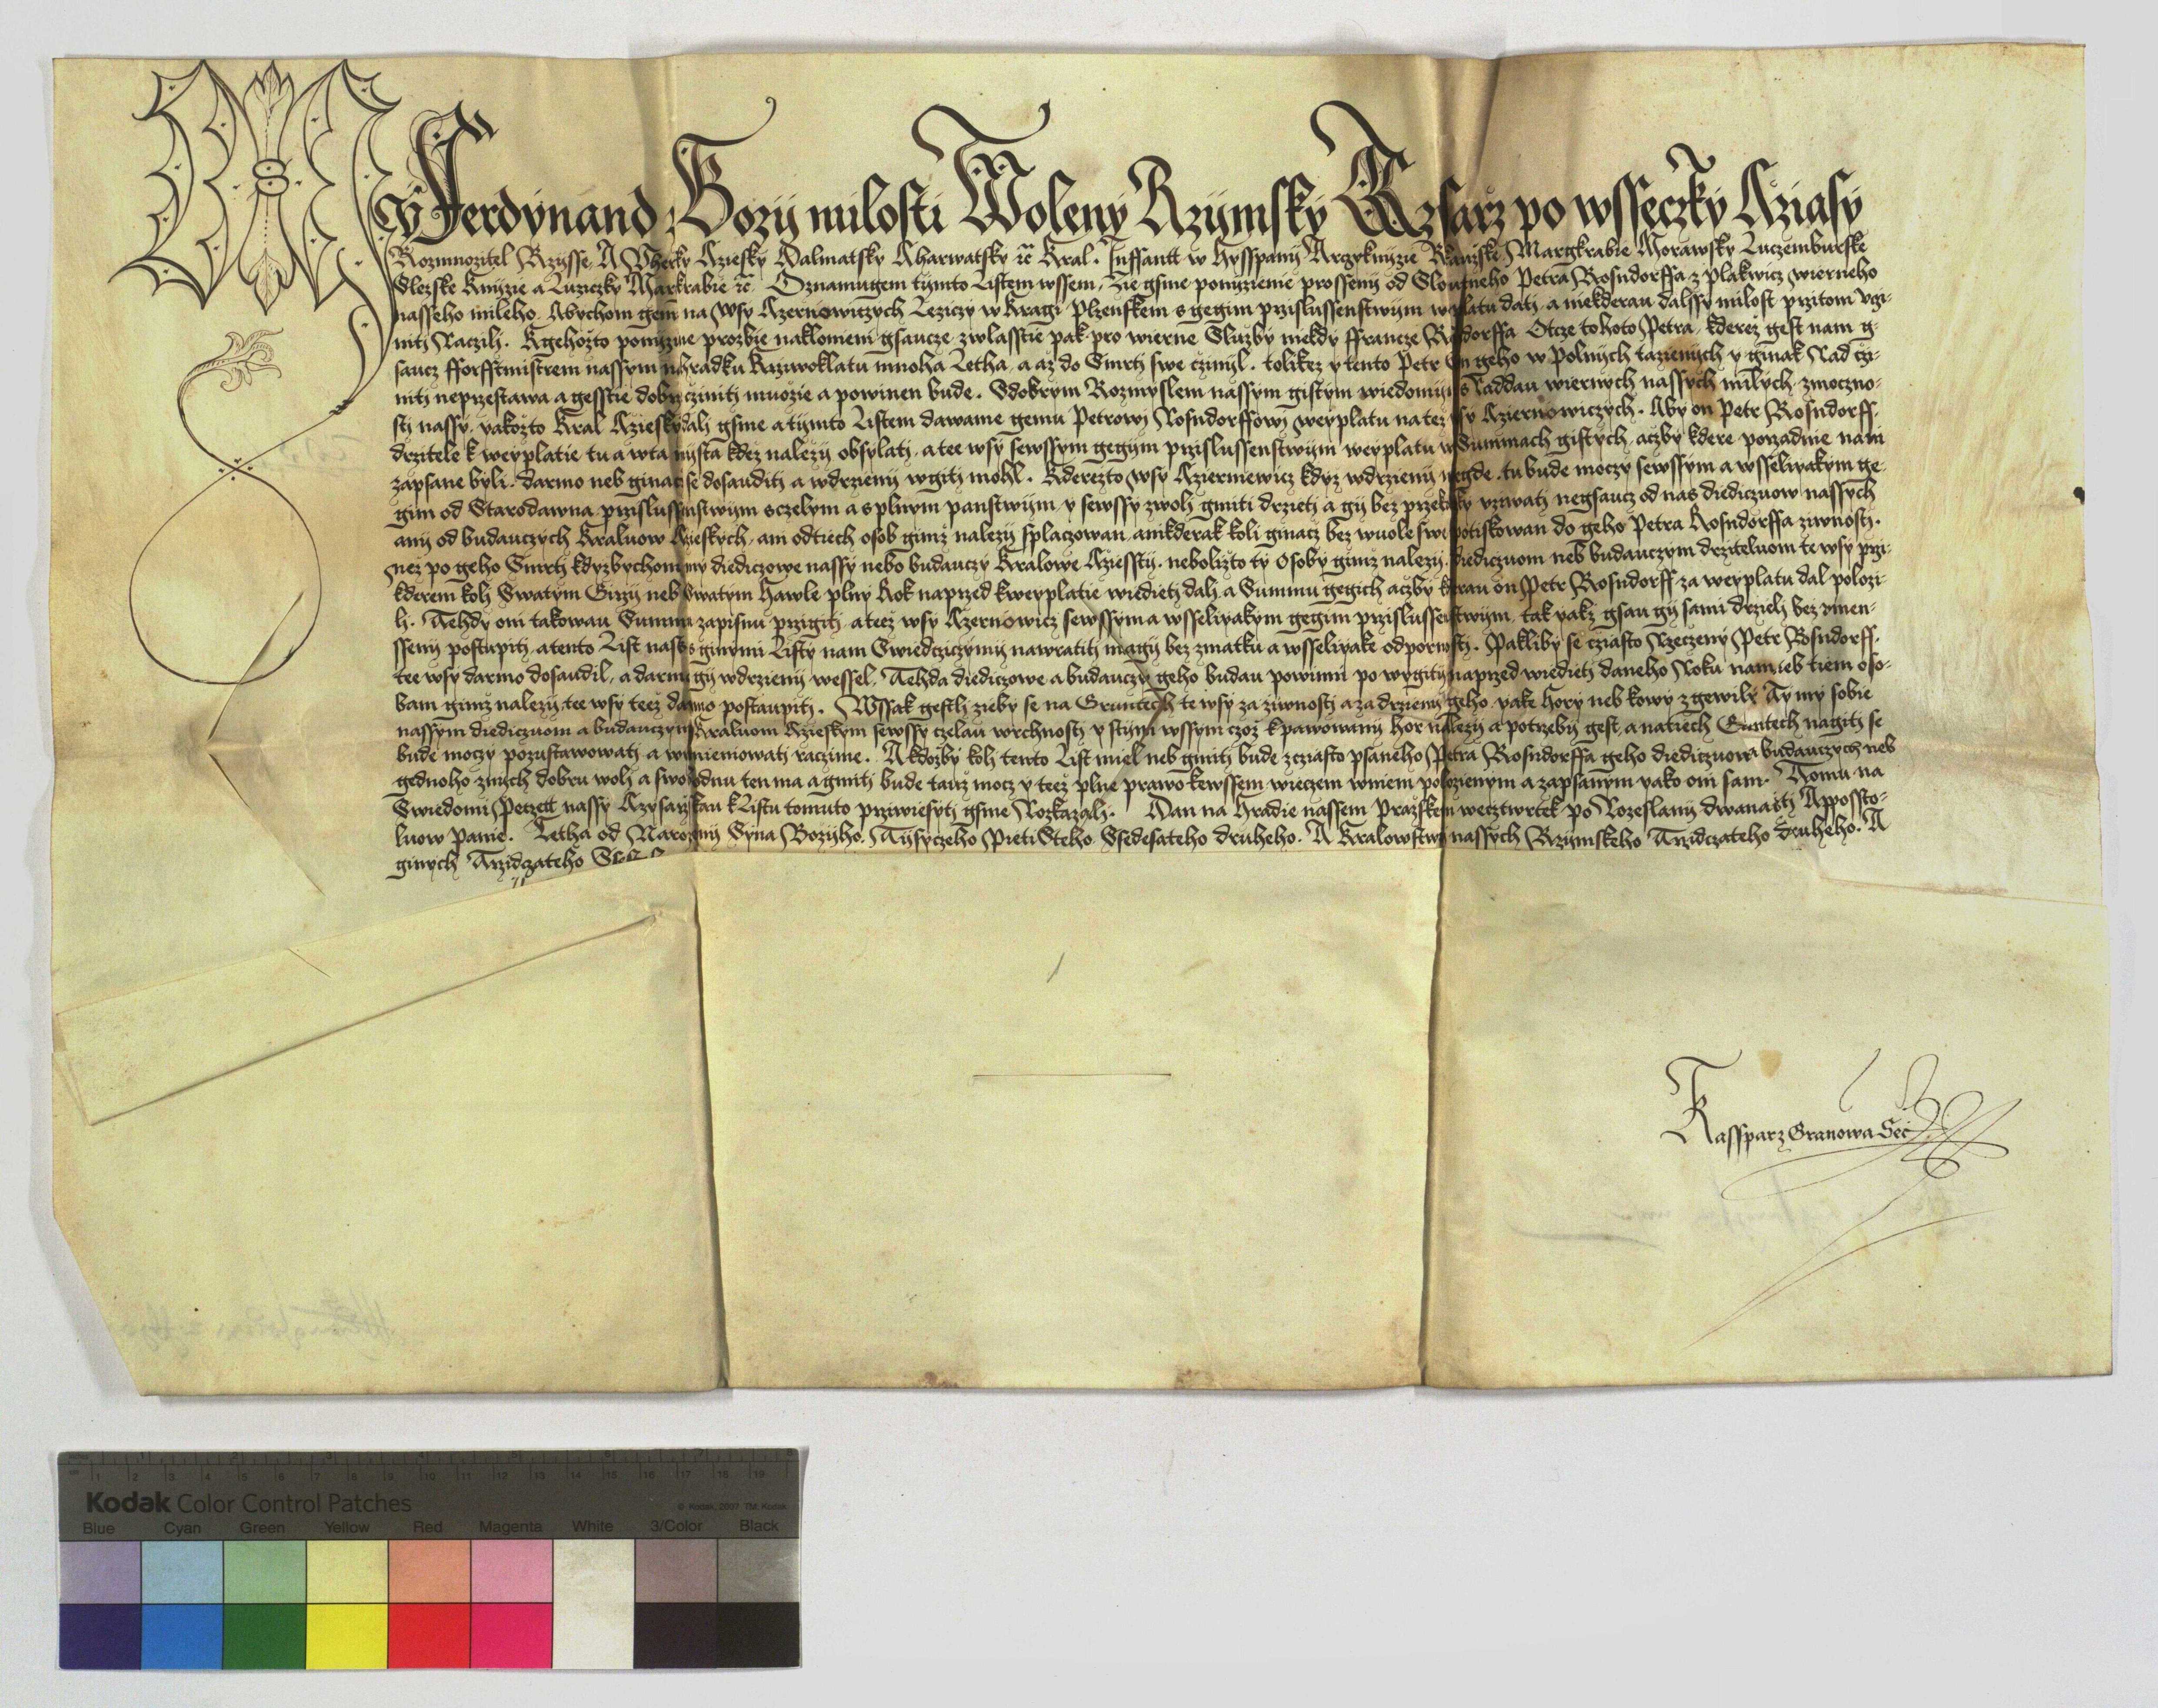 My Ferdynand Bozij milosti Woleny Rzijmsky Czysarz po wsseczky Cziasy
Rozmnozitel Rzijsse, A Vhersky Cziesky Dalmatsky Charwatsky ꝛc Kral. Inffantt w Hysspanij Arczyknijzie Rakauske Margkrabie Morawsky Luczemburske
Slezske Knijzie a Luziczky Markrabie ꝛc. Oznamugem tijmto Listem wssem, Zie gsme ponijzienie prosseny od Slowutneho Petra Rosndorffa z Plakwicz wierneho
nasseho mileho. Abychom gem na Wsy Czernowiczych Leziczy w Kragi Plzenskem s gegim przislussenstwijm weyplatu dati, a niekderau dalssy milost przitom vgi-
niti Raczili. K gehozto ponijzene prozbie nakloneni gsaucze, zwlasstie pak pro wierne Sluzby niekdy ffrancze Rosndorffa Otcze tohoto Petra, kderez gest nam g-
saucz fforsstmistrem nassym na hradku Krziwoklatu mnoha Letha, a az do Smrti swe czinyl. tolikez y tento Petr Syn geho w Polnijch tazienijch y ginak Rad czi-
niti neprzestawa a gesstie dobrze cziniti muozie a powinen bude. S dobrym Rozmyslem nassym gistym wiedomijm s Raddau wiernych nassych milych, zmoczno-
sti nassy, yakozto Kral Cziesky dali gsme a tijmto Listem dawame gemu Petrowi Rosndorffowi weyplatu na tez wsy Cziernowiczych. Aby on Petr Rosndorff,
drzitele k weyplatie tu a w ta mista kdez nalezij obsylati, a tee wsy sewssym gegijm przislussenstwijm weyplatu w Summach gistych, aczby kdere porzadnie nam
zapsane byli. darmo neb ginacz se dosauditi a w drzienij wgiti mohl. Kderezto wsy Czierniewicz kdyz w drzienij wegde, tu bude moczy sewssym a wsseliyakym ge-
gim od Starodawna przislussenstwijm s czelym a s plnym panstwijm y sewssy zwoli gmiti drzeti a gij bez przekazky vziwati negsaucz od nas diediczuow nassych
anij od budauczych Kraluow Czieskych, ani od tiech osob gimz nalezij splaczowan, ani kderak koli ginacz bez wuole swe potiskowan do geho Petra Rosndorffa ziwnosti.
nez po geho Smrti kdyzbychom my diediczowe nassy nebo budauczy Kralowe Cziessti, nebolizto ty Osoby gimz nalezij, diediczuom neb budauczym drziteluom te wsy przi
kderem koli Swatym Girzij neb Swatym Hawle plny Rok naprzed k weyplatie wiedieti dali a Summu gegich aczby kderau on Petr Rosndorff za weyplatu dal polozi-
li. Tehdy oni takowau Summu zapisnu przigiti a teez wsy Czernowicz sewssym a wsseliyakym gegim przislussenstwijm, tak yakz gsau gij sami drzieli bez zmen-
ssenij postupiti, a tento List nass s ginymi Listy nam Swiedcziczymij nawratiti magij bez zmatku a wsseliyake odpornosti. Pakliby se cziasto Rzeczeny Petr Rosndorff,
tee wsy darmo dosaudil, a darmo gij w drzienij wessel. Tehda diediczowe a budauczy geho budau powinni po wygiti naprzed wiedieti daneho Roku nam neb tiem oso-
bam gimz nalezij, tee wsy teez darmo postaupiti. Wssak gestli zieby se na Gruntech te wsy za ziwnosti a za drzienij geho yake Hory neb kowy zgewily Ty my sobie
nassym diediczuom a budauczym Kraluom Czieskym sewssy czelau wrchnosti y s tijm wssym czoz k pawowanij hor nalezij a potrzebij gest, a na tiech Gruntech nagiti se
bude moczy pozustawowati a wymieniowati raczime. A kdozby koli tento List miel neb gmiti bude z cziasto psaneho Petra Rosndorffa geho diediczuow a budauczych neb
gednoho z nich dobru woli a swobodnu ten ma a gmiti bude tauz mocz y teez plne prawo ke wssem wieczem w niem polozienym a zapsanym yako oni sami. Tomu na
Swiedomi Peczett nassy Czysarzskau k Listu tomuto przwiesyti gsme Rozkazali. Dan na Hradie nassem Prazskem we cztwrtek po Rozeslanij dwanacti Apposto-
luow Panie. Letha od Narozenij Syna Bozijho. Tisyczeho Pieti Steho Ssedesateho druheho. A Kralowstwij nassych Rzijmskeho Trzidczateho druheho. A
ginych Trzidczateho
Kasspar z Granowa Sec
Kodak Color Control Patches
© Kodak, 2007 TM: Kodak
Blue Cyan Green Yellow Red Magenta White 3/Color Black
1 2 3 4 5 6 7 8 9 10 11 12 13 14 15 16 17 18 19